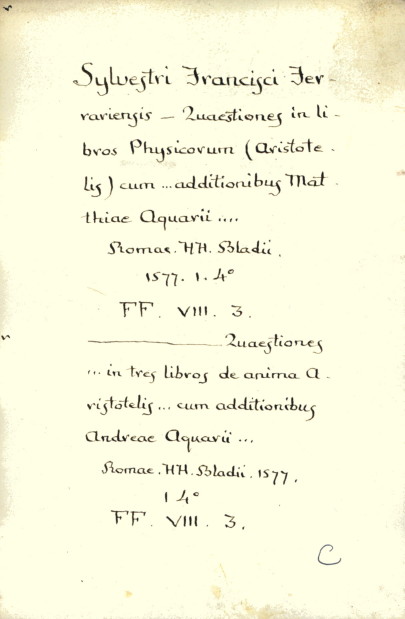 Sylvestri Francisci Fer-
rariensis — Quaestiones in li-
bros Physicorum (Aristote-
lis) cum ... additionibus Mat-
thiae Aquarii ....
Romae. HH. Bladii.
1577. 1. 4°
FF. VIII. 3.
———— Quaestiones
... in tres libros de anima A-
ristotelis ... cum additionibus
Andreae Aquarii ...
Romae. HH. Bladii. 1577.
1 4°
FF. VIII. 3.
C